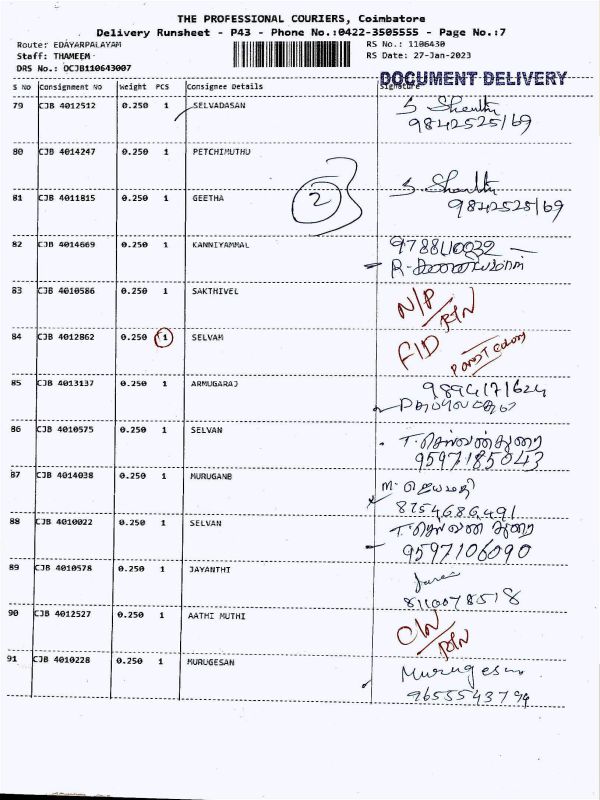 THE PROFESSIONAL COURIERS, Coimbatore
Delivery Runsheet - P43 - Phone No.:0422-3505555 - Page No.:7
Route: EDAYARPALAYAM RS No.: 1106430
Staff: THAMEEM RS Date: 27-Jan-2023
DRS No.: OCJB110643007
DOCUMENT DELIVERY
S No Consignment No Weight PCS Consignee Details Signature
79 CJB 4012512 0.250 1 SELVADASAN
9842525169
80 CJB 4014247 0.250 1 PETCHIMUTHU
2
81 CJB 4011815 0.250 1 GEETHA
9842525169
82 CJB 4014669 0.250 1 KANNIYAMMAL
83 CJB 4010586 0.250 1 SAKTHIVEL N/P
RTN
84 CJB 4012862 0.250 1 SELVAM F/D
85 CJB 4013137 0.250 1 ARMUGARAJ 9894171624
86 CJB 4010575 0.250 1 SELVAN T. செல்வன்துரை
9597185043
87 CJB 4014038 0.250 1 MURUGANB M.
8754686491
88 CJB 4010022 0.250 1 SELVAN T. செல்வன் துரை
9597106090
89 CJB 4010578 0.250 1 JAYANTHI
8110078518
90 CJB 4012527 0.250 1 AATHI MUTHI C/N
RTN
91 CJB 4010228 0.250 1 MURUGESAN Murugesan
9655543794